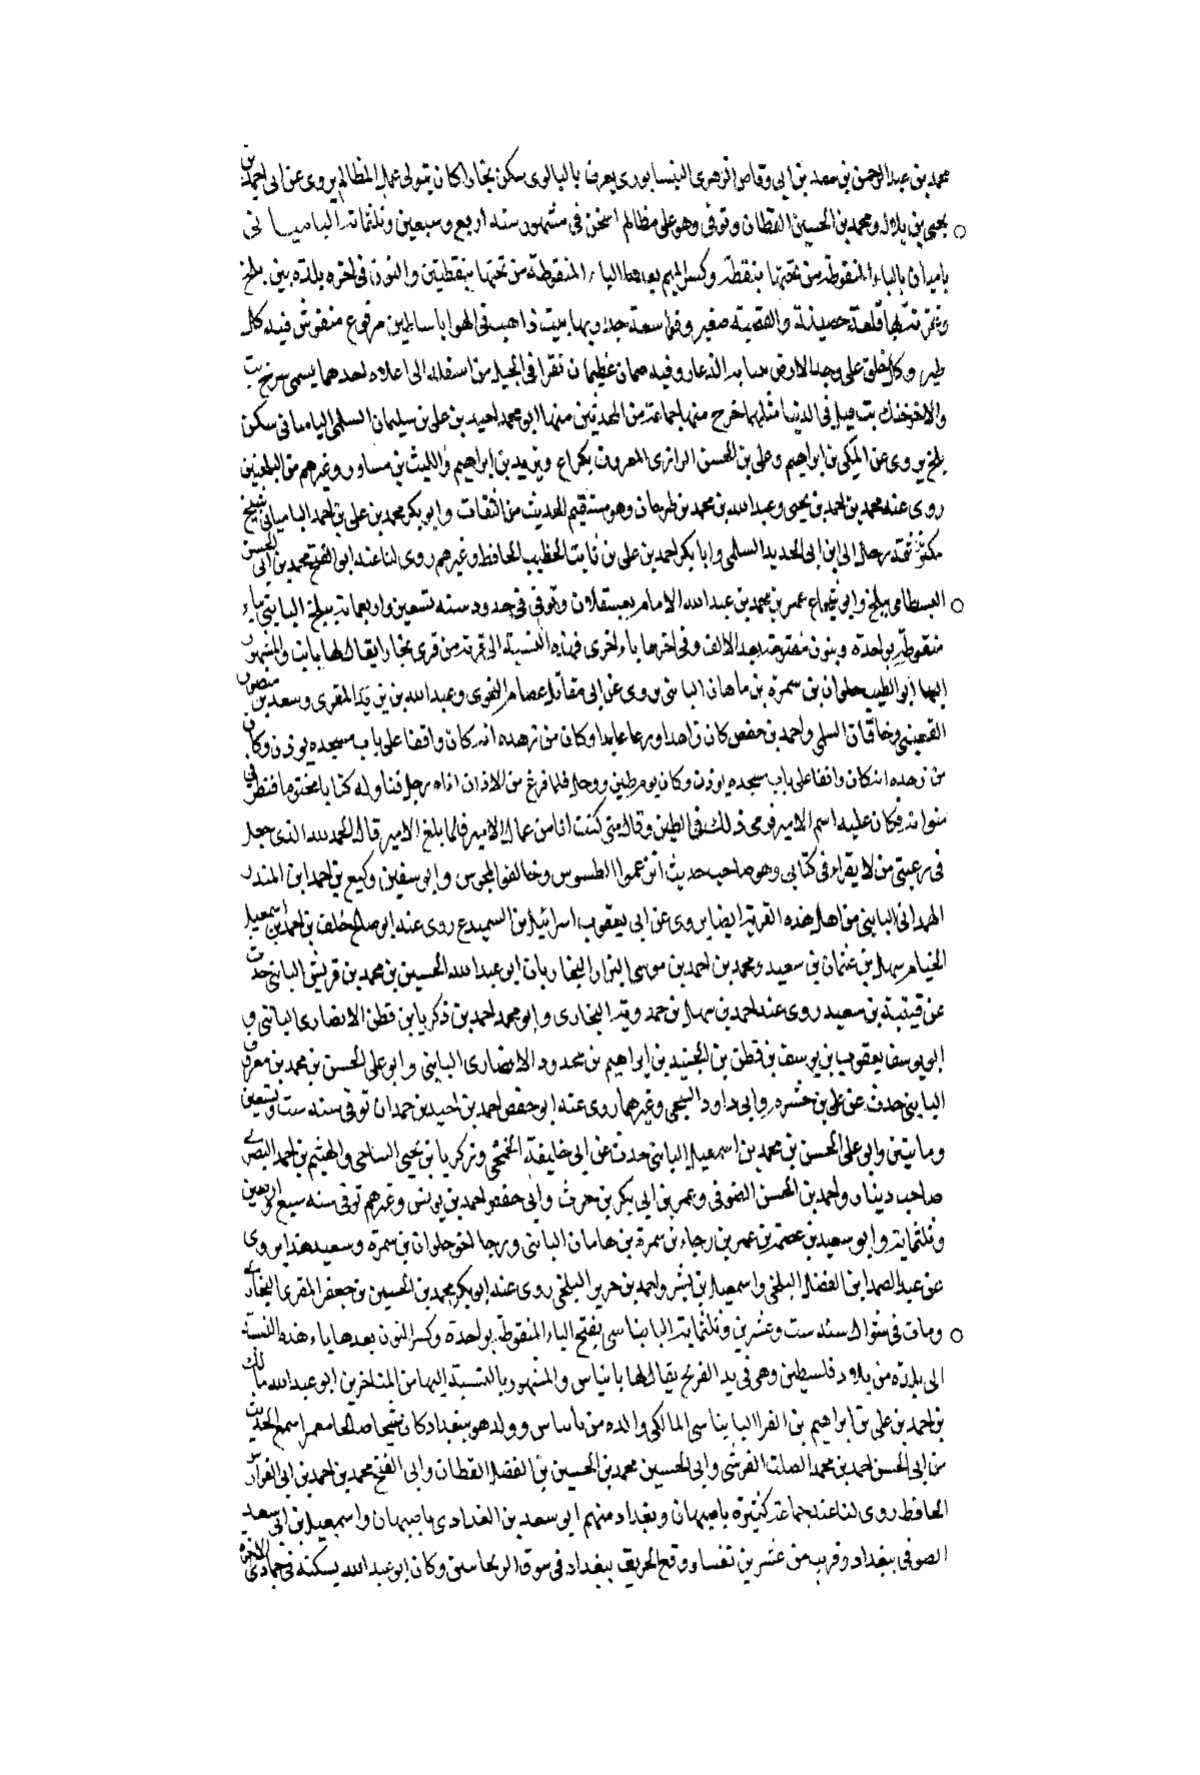 محمد بن عبد الرحمن بن سعد بن ابى وقاص الزهرى النيسابورى يعرف بالبالوى سكن بخارا وكان يتولى عمل المظالم يروى عن ابى احمد بن
يحيى بن بلال ومحمد بن الحسين القطان وتوفى وهو على مظالم فى شهور سنه اربع وسبعين وثلثمائه الباميانى
باميان بالباء المنقوطة من تحتها بنقطة وكسر الميم بعدها الياء المنقوطة من تحتها بنقطتين والنون فى اخره بلدة بين بلخ
وغزنة بها قلعة حصينة والقصبة صغيرة واسعة جدا وبها بيت ذاهب فى الهوا باساطين مرفوع منقوش فيه كل
طير وكل خلق على وجه الارض وفيه صنمان عظيمان نقرا فى الجبل من اسفله الى اعلاه احدهما يسمى سرخ بت
والاخر خنك بت قيل فى الدنيا مثلهما خرج منها جماعة من المحدثين منها ابو محمد احيد بن على بن سليمان السلمى الباميانى سكن
بلخ يروى عن المكى بن ابراهيم وعلى بن الحسن الرازى المعروف بكراع ويزيد بن ابراهيم والليث بن مساور وغيرهم من البلخيين
روى عنه محمد بن احمد بن يحيى وعبد الله بن محمد بن طرخان وهو مستقيم الحديث من الثقات وابو بكر محمد بن على بن احمد الباميانى شيخ
مكثر ثقة رحل الى ابن ابى الحديد السلمى وابا بكر احمد بن على بن ثابت الخطيب الحافظ وغيرهم روى لنا عنه ابو الفتح محمد بن ابى الحسن
البسطامى ببلخ وابو شجاع عمر بن محمد بن عبد الله الامام وتوفى فى حدود سنه تسعين واربعمائة ببلخ البانبى بباء
منقوطة بواحدة وبنون مفتوحة بعد الالف وفى اخرها باء اخرى فهذه النسبة الى قرية من قرى بخارا يقال لها بانب والمشهور
اليها ابو الطيب جلوان بن سمرة بن ماهان البانبى يروى عن ابى مقاتل عصام النحوى وعبد الله بن يزيد المقرى وسعد بن منصور
القعنبى وخاقان السلمى واحمد بن حفص كان زاهدا ورعا عابدا وكان من زهده انه كان واقفا على باب مسجده يوذن وكان
من زهده انه كان واقفا على باب مسجده يوذن وكان يوم طين ووحل فلما فرغ من الاذان اتاه رجل فناوله كتابا مختوما فنظر فى
عنوانه فكان عليه اسم الامير فرمى ذلك فى الطين وقال متى كنت انا من عمال الامير فلما بلغ الامير قال الحمد لله الذى جعل
فى رعيتى من لا يقراء فى كتابى وهو صاحب حديث انزعوا الطسوس وخالفوا المجوس وابو سفين وكيع بن احمد ابن المنذر
الهمدانى البانبى من اهل هذه القرية ايضا يروى عن ابى يعقوب اسرائيل بن السميدع روى عنه ابو صالح خلف بن احمد بن اسمعيل
الخيام سهل بن عثمان بن سعيد ومحمد بن احمد بن موسى البزاز البخاريان ابو عبد الله الحسين بن محمد بن قريش البانبى حدث
عن قتيبة بن سعيد روى عنه احمد بن سهل بن حمدويه البخارى وابو محمد احمد بن زكريا بن قطن الانصارى البانبى و
ابو يوسف يعقوب بن يوسف بن قطن بن الجنيد بن ابراهيم بن الانصارى البانبى وابو على الحسن بن محمد بن معروف
البانبى حدث عن على بن خشرم وابى داود السبحى وغيرهما روى عنه ابو حفص احمد بن احيد بن حمدان توفى سنه ست وتسعين
ومايتين وابو على الحسن بن محمد بن اسمعيل البانبى حدث عن ابى خليفة الجمحى وزكريا بن يحيى الساجى والهيثم بن احمد البصرى
صاحب دينار واحمد بن الحسن الصوفى وعمر بن ابى بكر بن حرث وابى حفص احمد بن يونس وغيرهم توفى سنه سبع اربعين
وثلثمائة وابو سعيد بن عصمة بن عمر بن رجاء بن سمرة بن هامان البانبى ورجا اخو جلوان بن سمرة وسعيد هذا يروى
عن عبد الصمد ابن الفضل البلخى واسمعيل بن بشر واحمد بن جرير البلخى روى عنه ابو بكر محمد بن الحسين بن جعفر المقرى البخارى
ومات فى شوال سنه ست وعشرين وثلثمايه البانياسى بفتح الباء المنقوطة بواحدة وكسر النون بعدها ياء هذه النسبة
الى بلدة من بلاد فلسطين وهى فى يد الفرنج يقال لها بانياس والمشهور بالنسبة اليها من المتاخرين ابو عبد الله مالك
بن احمد بن على بن ابراهيم بن الفرا البانياسى المالكى والده من بانياس وولد هو ببغداد كان شيخا صالحا معمرا سمع الحديث
من ابى الحسن احمد بن محمد الصلت القرشى وابى الحسين محمد بن الحسين بن الفضل القطان وابى الفتح محمد بن احمد بن ابى الفوارس
الحافظ روى لنا عنه جماعة كثيرة باصبهان وبغداد منهم ابو سعد بن البغدادى باصبهان واسمعيل بن ابى سعد
الصوفى ببغداد وقريب من عشرين نفسا ووقع الحريق ببغداد فى سوق الريحانيين وكان ابو عبد الله يسكنه فى جمادى الاخرة